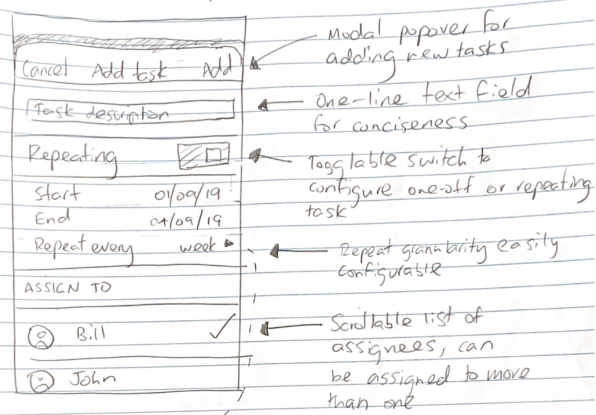 Cancel Add task Add
Task description
Repeating
Start 01/09/19
End 04/09/19
Repeat every week
ASSIGN TO
Bill
John
Modal popover for
adding new tasks
One-line text field
for conciseness
Togglable switch to
configure one-off or repeating
task
Repeat granularity easily
configurable
Scrollable list of
assignees, can
be assigned to more
than one